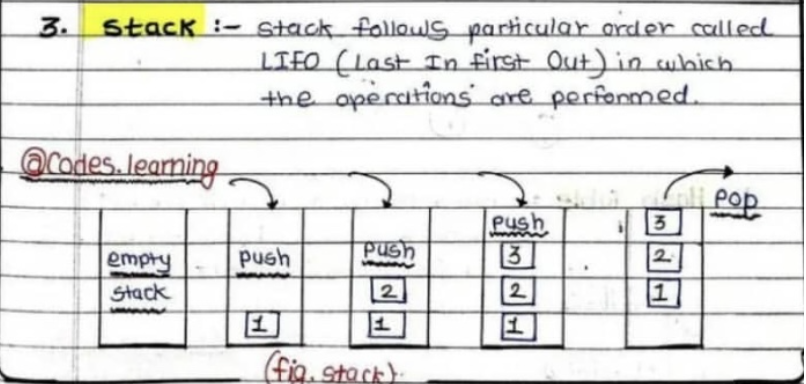 3. Stack :- Stack follows particular order called
LIFO (Last In First Out) in which
the operations are performed.
@Codes.learning
empty
stack
push
1
push
2
1
push
3
2
1
3
2
1
Pop
(fig. stack)